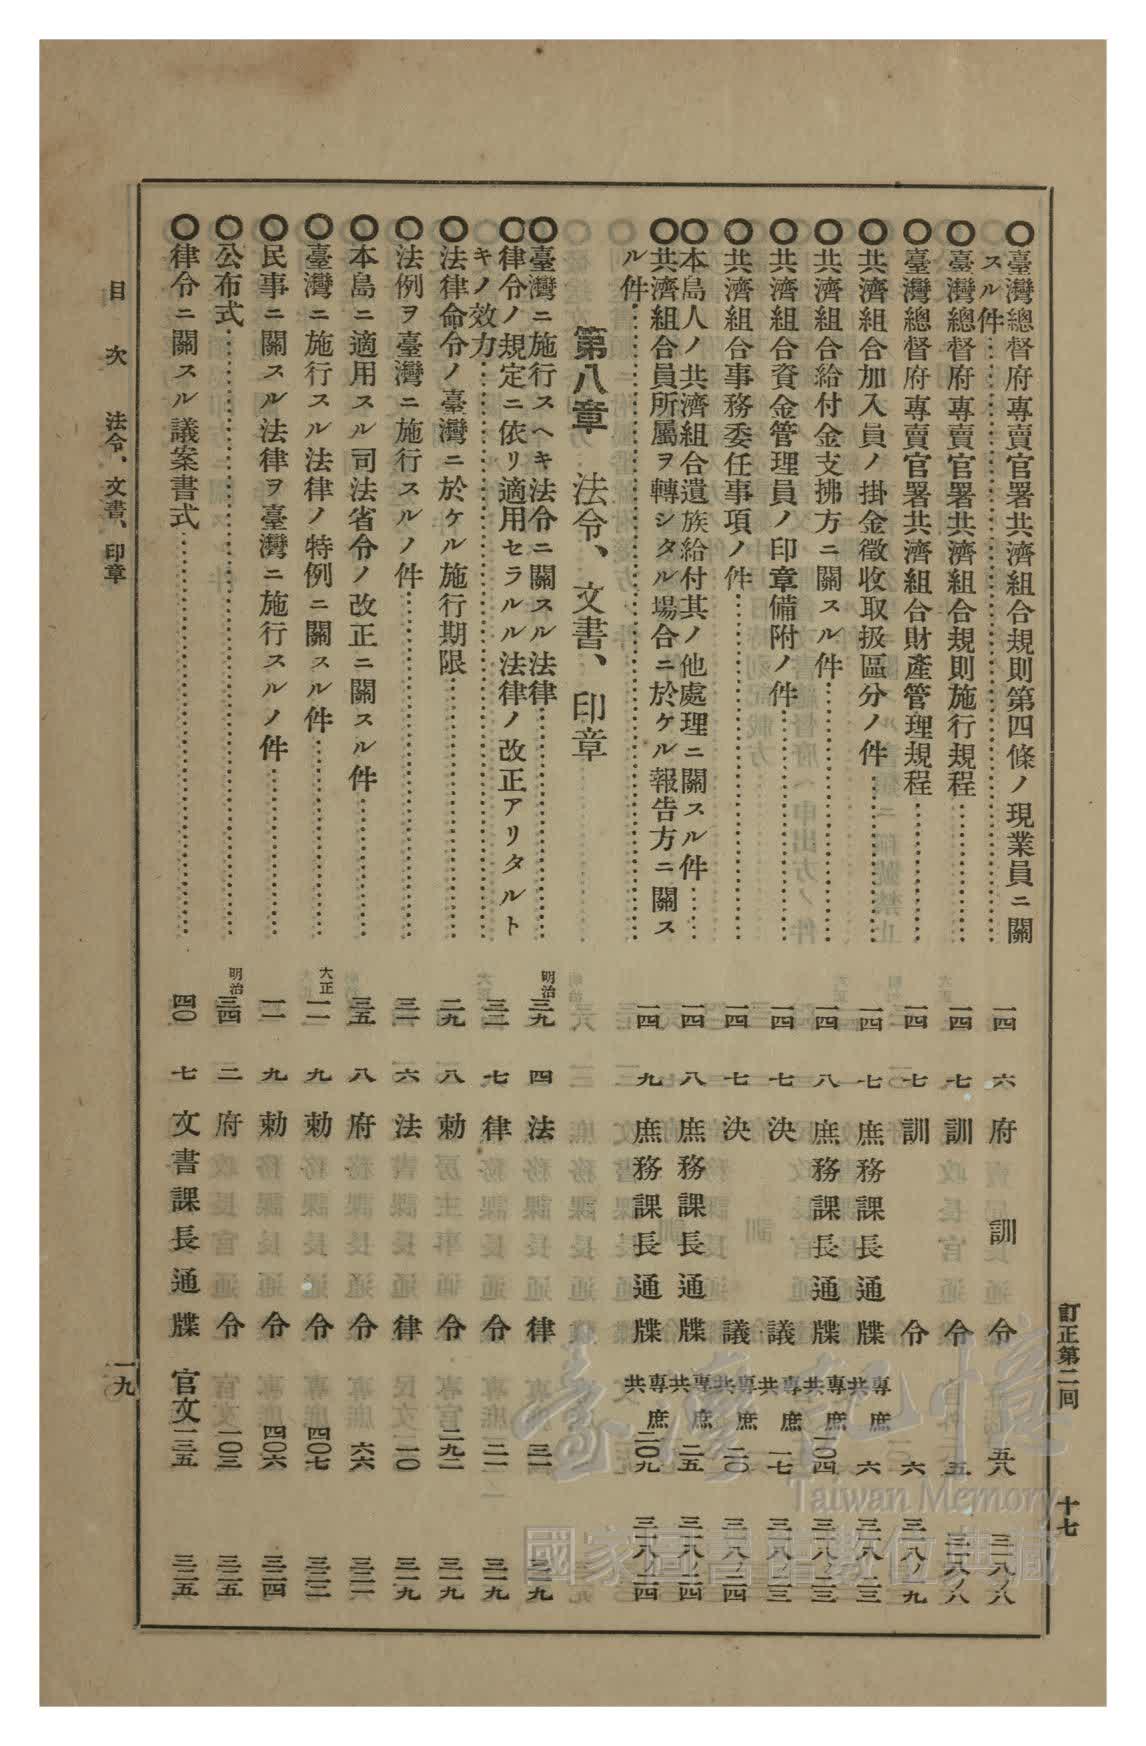 訂正第二回　十七
○臺灣總督府專賣官署共濟組合規則第四條ノ現業員ニ關
スル件……一四　六　府訓令　五八　三一八ノ八
○臺灣總督府專賣官署共濟組合規則施行規程……一四　七　訓令　五　三一八ノ八
○臺灣總督府專賣官署共濟組合財產管理規程……一四　七　訓令　六　三一八ノ九
○共濟組合加入員ノ掛金徵收取扱區分ノ件……一四　七　庶務課長通牒　專庶共　六　三一八ノ一三
○共濟組合給付金支拂方ニ關スル件……一四　八　庶務課長通牒　專庶共　一〇四　三一八ノ一三
○共濟組合資金管理員ノ印章備附ノ件……一四　七　決議　專庶共　一七　三一八ノ一三
○共濟組合事務委任事項ノ件……一四　七　決議　專庶共　二〇　三一八ノ一四
○本島人ノ共濟組合遺族給付其ノ他處理ニ關スル件……一四　八　庶務課長通牒　專庶共　二五　三一八ノ一四
○共濟組合員所屬ヲ轉シタル場合ニ於ケル報告方ニ關ス
ル件……一四　九　庶務課長通牒　專庶共　二〇九　三一八ノ一四
第八章　法令、文書、印章
○臺灣ニ施行スヘキ法令ニ關スル法律……明治三九　四　法律　三一　三一九
○律令ノ規定ニ依リ適用セラルル法律ノ改正アリタルト
キノ效力……三二　七　律令　二一　三一九
○法律命令ノ臺灣ニ於ケル施行期限……二九　八　勅令　二九二　三一九
○法例ヲ臺灣ニ施行スルノ件……三一　六　法律　一〇　三一九
○本島ニ適用スル司法省令ノ改正ニ關スル件……三五　八　府令　六六　三二一
○臺灣ニ施行スル法律ノ特例ニ關スル件……大正一一　九　勅令　四〇七　三二二
○民事ニ關スル法律ヲ臺灣ニ施行スルノ件……一一　九　勅令　四〇六　三二四
○公布式……明治三四　二　府令　一〇三　三二五
○律令ニ關スル議案書式……四〇　七　文書課長通牒　官文一三五　三二五
目次　法令、文書、印章
一九
臺灣記憶
Taiwan Memory
國家圖書館數位典藏